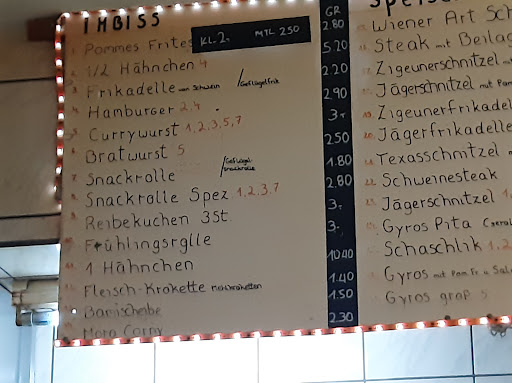 IMBISS
GR
Pommes Frites KL. 2.- MTL 250 2.80
1/2 Hähnchen 4 5.20
Frikadelle von Schwein /Geflügelfrik 2.20
Hamburger 2,4 2.90
Currywurst 1,2,3,5,7 3.-
Bratwurst 5 250
Snackrolle /Geflügel-snackrolle 1.80
Snackrolle Spez 1,2,3,7 2.80
Reibekuchen 3St. 3.-
Frühlingsrolle 3.-
1 Hähnchen 10.40
Fleisch-Krokette 1.40
Bamischeibe 1.50
2.30
Wiener Art Sch
Steak mit Beilag
Zigeunerschnitzel
Jägerschnitzel mit Pom
Zigeunerfrikadel
Jägerfrikadelle
Texasschnitzel
Schweinesteak
Jägerschnitzel
Gyros Pita
Schaschlik 1,2
Gyros mit Pom Fr. u Sal
Gyros groß 5